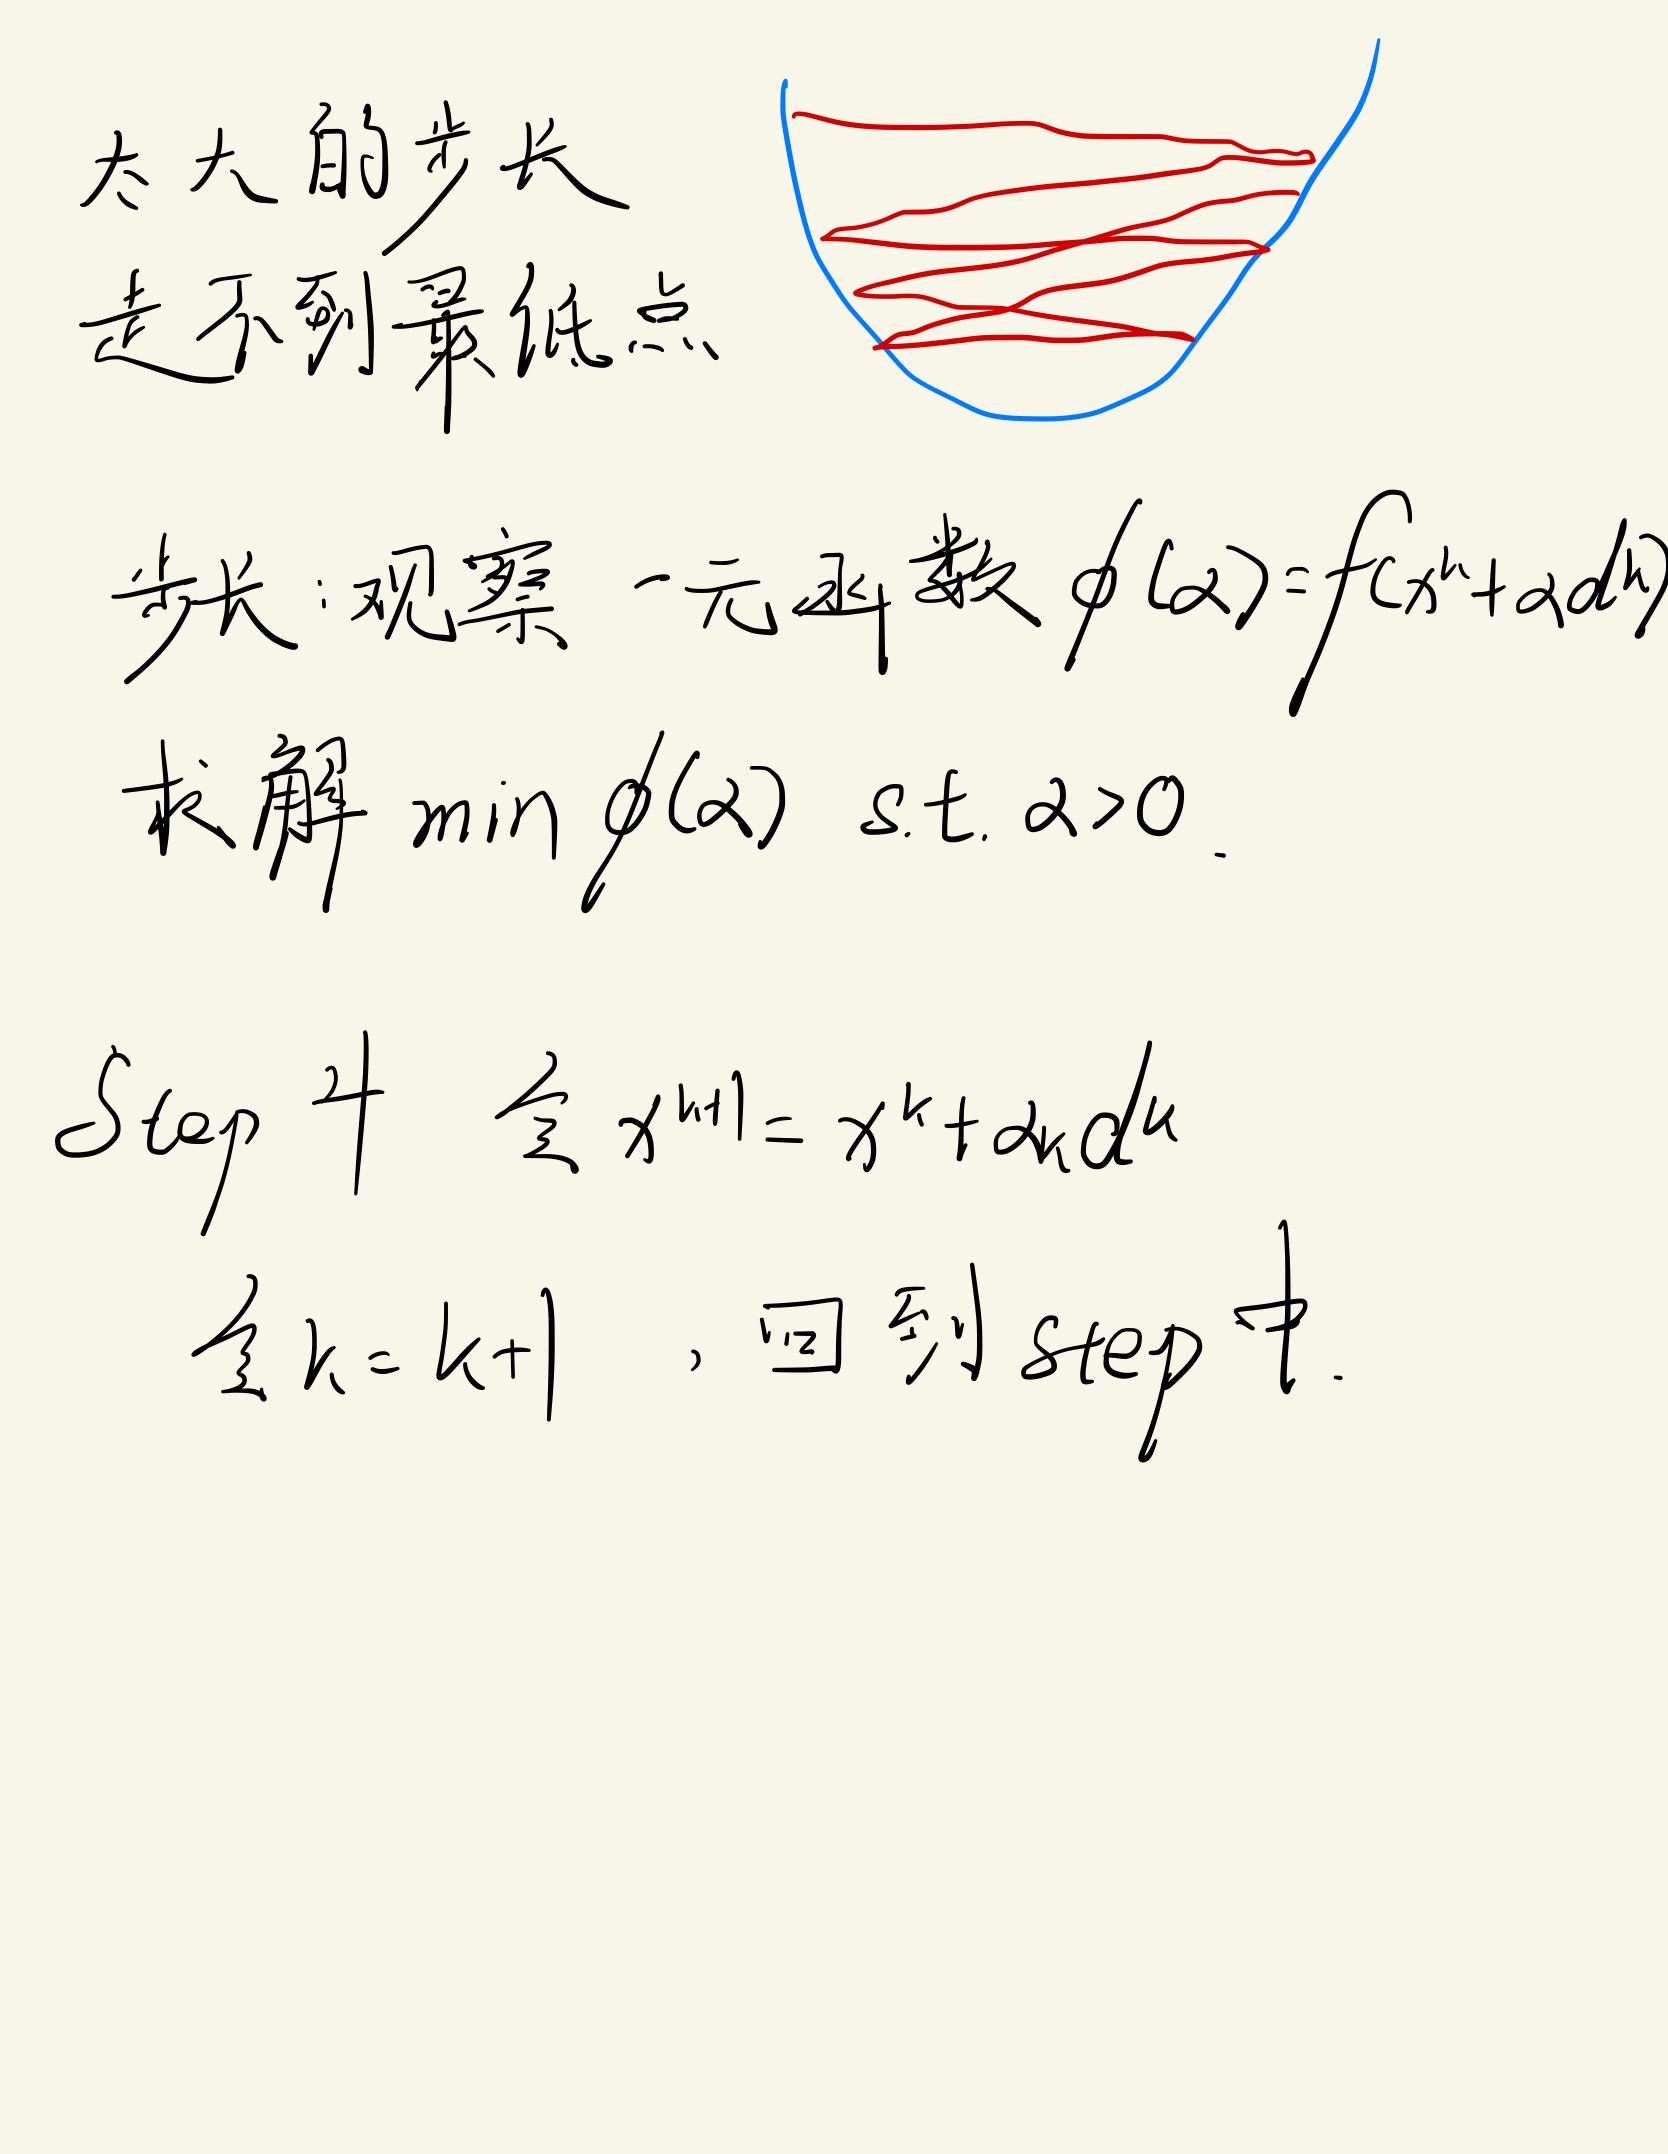 太大的步长
走不到最低点
步长:观察一元函数 φ(α)=f(x^k+αd^k)
求解 min φ(α) s.t. α>0.
Step 4 令 x^{k+1}=x^k+α_k d^k
令 k=k+1 , 回到 step